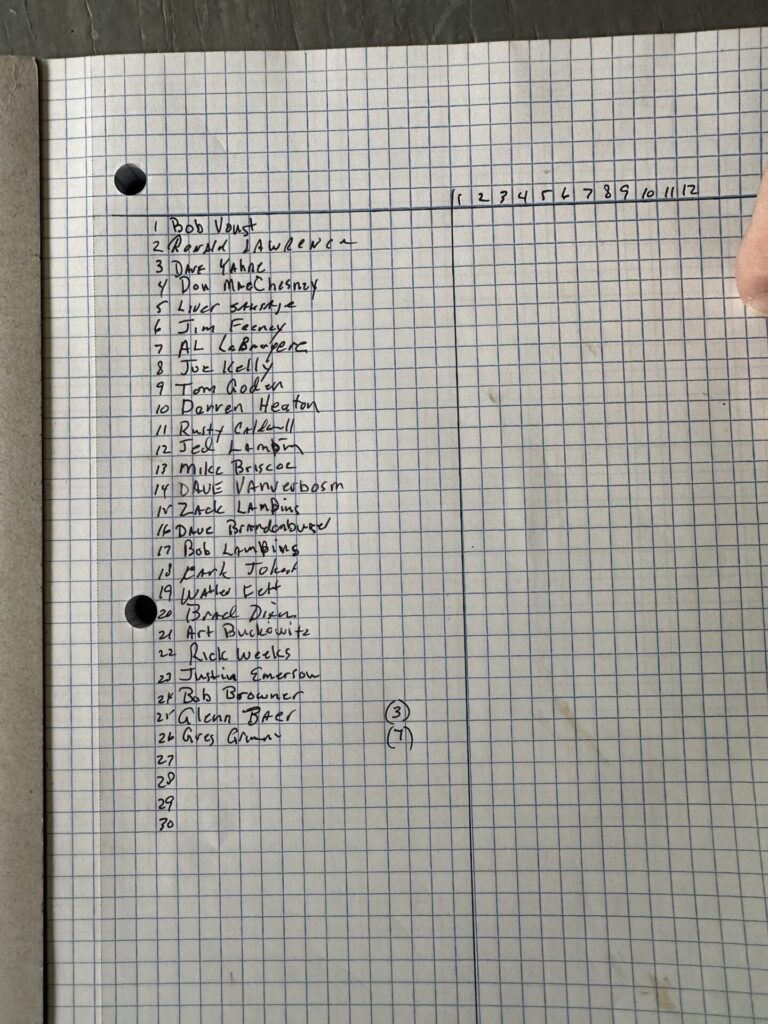 1 2 3 4 5 6 7 8 9 10 11 12
1 Bob Voust
2 Ronald LAWRENCE
3 DAVE YAhNE
4 Don MacChesney
5 Liver sausage
6 Jim Feeney
7 AL LaBruyere
8 Joe Kelly
9 Tom
10 Darren Heaton
11 Rusty Caldwell
12 Jed
13 Mike Briscoe
14 DAVE VANVerbosm
15 Zack LAMPing
16 DAVE Brandenburgel
17 Bob LAMPings
18
19 Walter
20 Brad Dixon
21 Art Buckowitz
22 Rick Weeks
23 Justin Emerson
24 Bob Browner
25 Glenn BAer (3)
26 Greg (7)
27
28
29
30